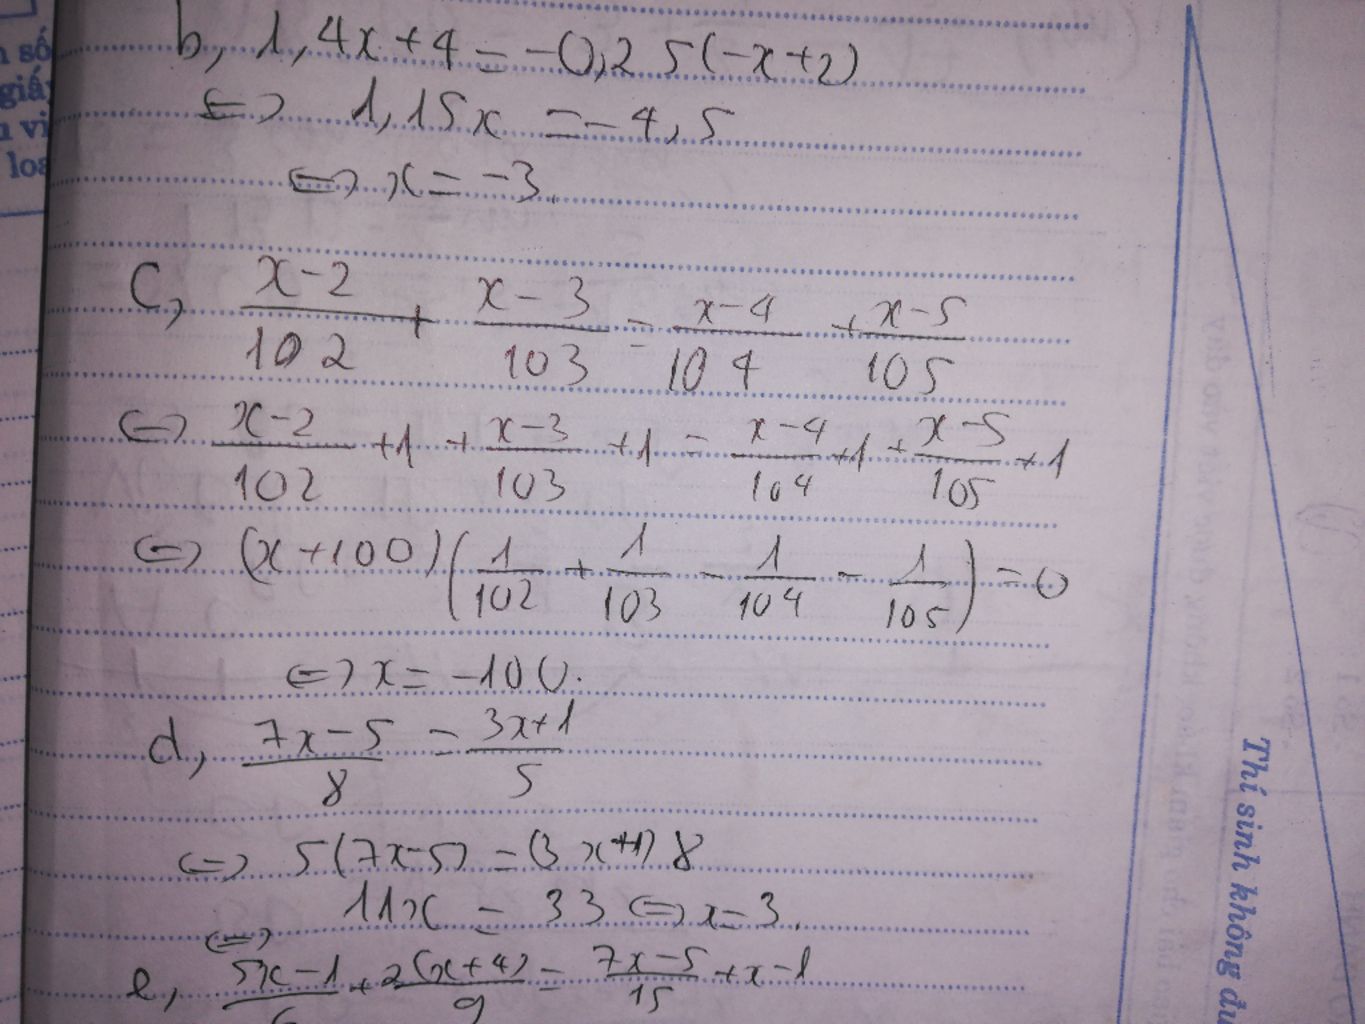 n số
giấy
u vi
loạ
b, 1,4x+4 = -0,25(-x+2)
⇔ 1,15x = -4,5
⇔ x = -3.
c, \frac{x-2}{102} + \frac{x-3}{103} = \frac{x-4}{104} + \frac{x-5}{105}
⇔ \frac{x-2}{102} +1 + \frac{x-3}{103} +1 = \frac{x-4}{104} +1 + \frac{x-5}{105} +1
⇔ (x+100)(\frac{1}{102} + \frac{1}{103} - \frac{1}{104} - \frac{1}{105}) = 0
⇔ x = -100.
d, \frac{7x-5}{8} = \frac{3x+1}{5}
⇔ 5(7x-5) = (3x+1)8
⇔ 11x = 33 ⇔ x=3.
e, \frac{5x-1}{6} + \frac{2(x+4)}{9} = \frac{7x-5}{15} + x-1
Thí sinh không đư